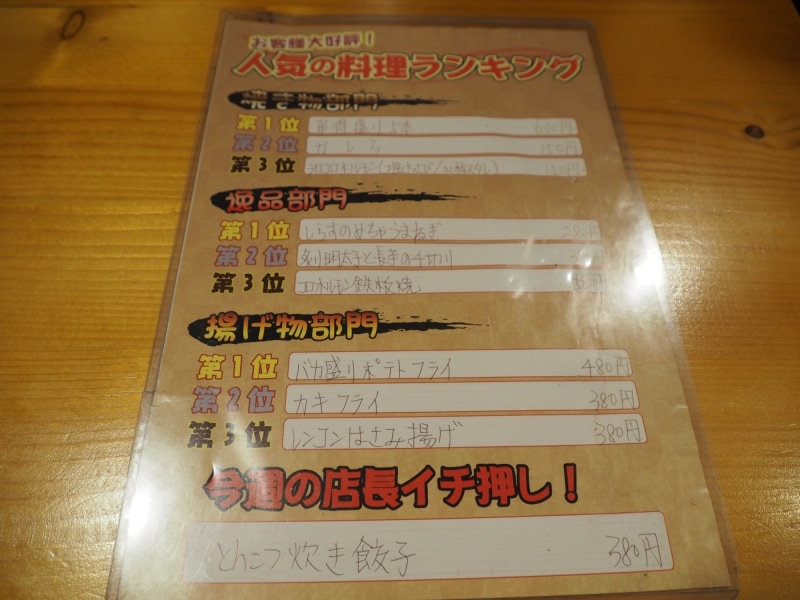 お客様大好評！
人気の料理ランキング
焼き物部門
第1位 串焼盛り5本 650円
第2位 かしら 150円
第3位 コロコロホルモン 150円
逸品部門
第1位 しらすのめちゃうまねぎ 280円
第2位 炙り明太子と長芋の千切り
第3位 コロホルモン鉄板焼
揚げ物部門
第1位 バカ盛りポテトフライ 480円
第2位 カキフライ 380円
第3位 レンコンはさみ揚げ 380円
今週の店長イチ押し！
とんこつ炊き餃子 380円